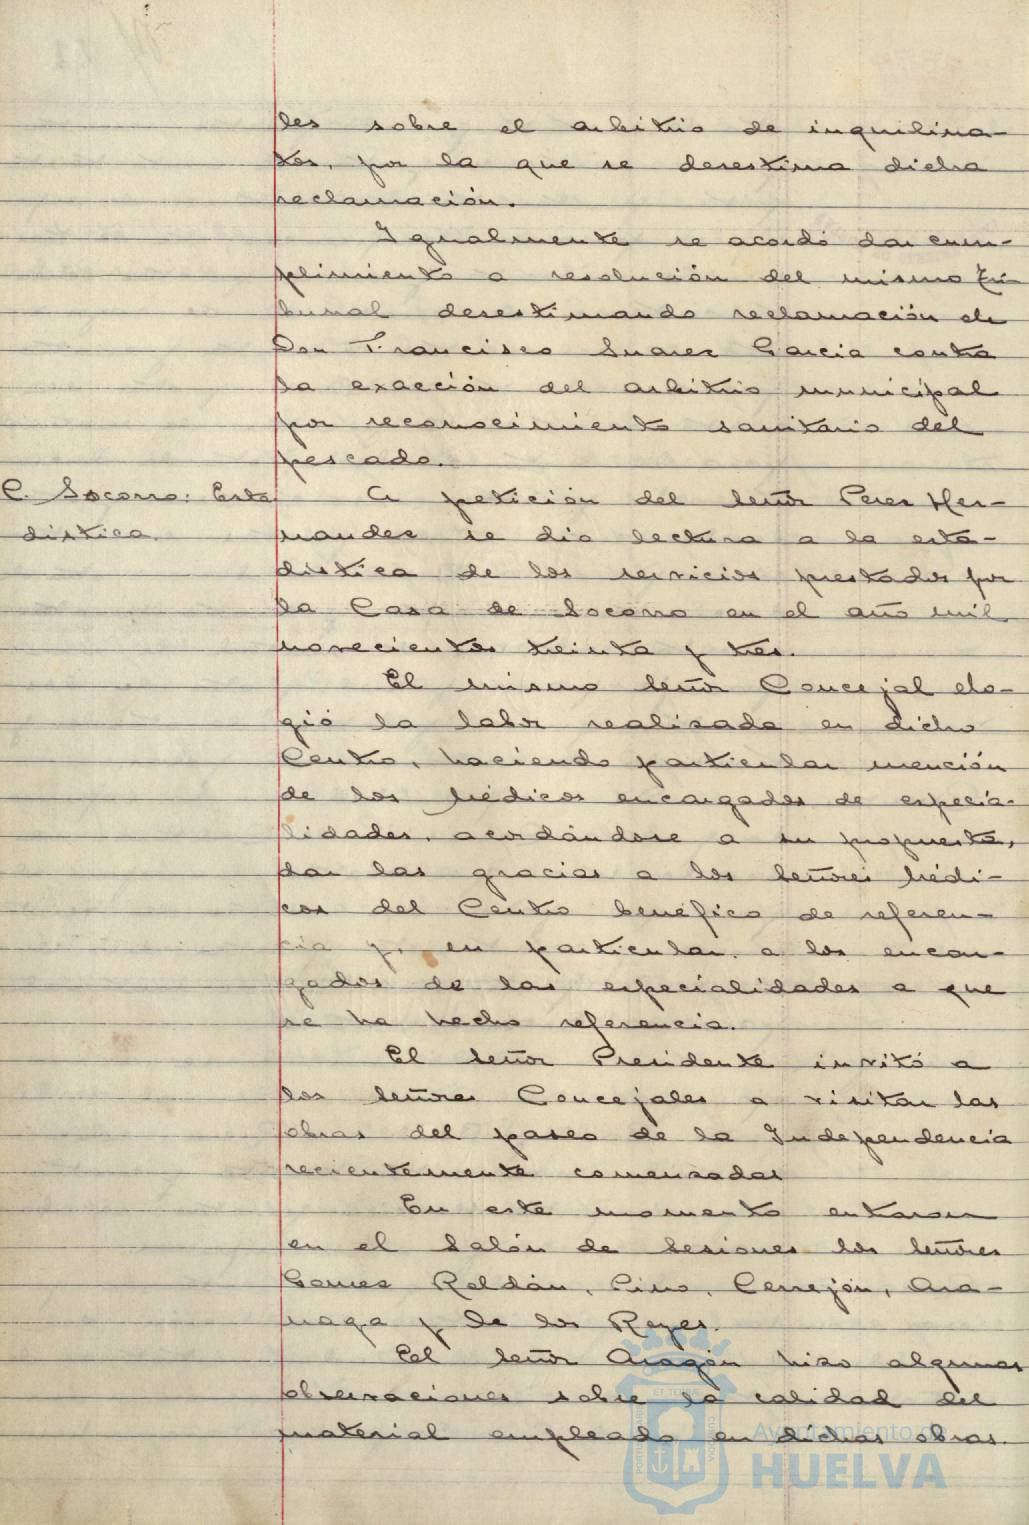 les sobre el arbitrio de inquilina-
tos, por la que se desestima dicha
reclamación.
Igualmente se acordó dar cum-
plimiento a resolución del mismo Tri-
bunal desestimando reclamación de
Don Francisco Suarez Garcia contra
la exacción del arbitrio municipal
por reconocimiento sanitario del
pescado.
C. Socorro: Esta
dística.
A petición del Señor Perez Her-
nandez se dio lectura a la esta-
dística de los servicios prestados por
la Casa de Socorro en el año mil
novecientos treinta y tres.
El mismo Señor Concejal elo-
gió la labor realizada en dicho
Centro, haciendo particular mención
de los Médicos encargados de especia-
lidades, acordándose a su propuesta,
dar las gracias a los Señores Médi-
cos del Centro benéfico de referen-
cia y, en particular, a los encar-
gados de las especialidades a que
se ha hecho referencia.
El Señor Presidente invitó a
los Señores Concejales a visitar las
obras del paseo de la Independencia
recientemente comenzadas
En este momento entraron
en el Salón de Sesiones los Señores
Gomez Roldán, Pino, Cerrejón, Ara-
naga y de los Reyes.
El Señor Aragón hizo algunas
observaciones sobre la calidad del
material empleado en dichas obras.
Ayuntamiento de
HUELVA